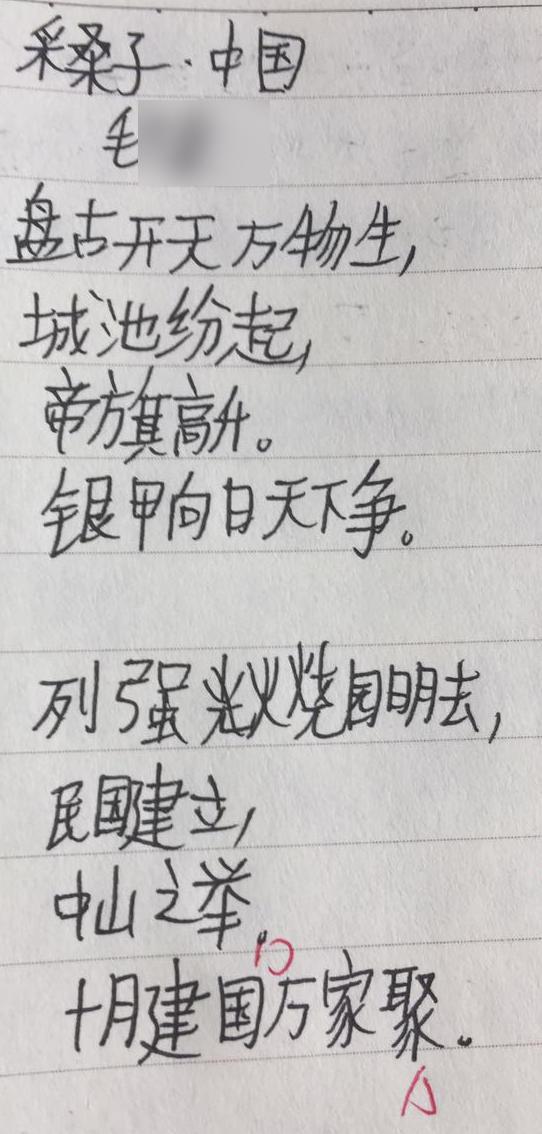 采桑子·中国
毛
盘古开天万物生，
城池纷起，
帝旗高升。
银甲向日天下争。
列强火烧圆明去，
民国建立，
中山之举。
十月建国万家聚。